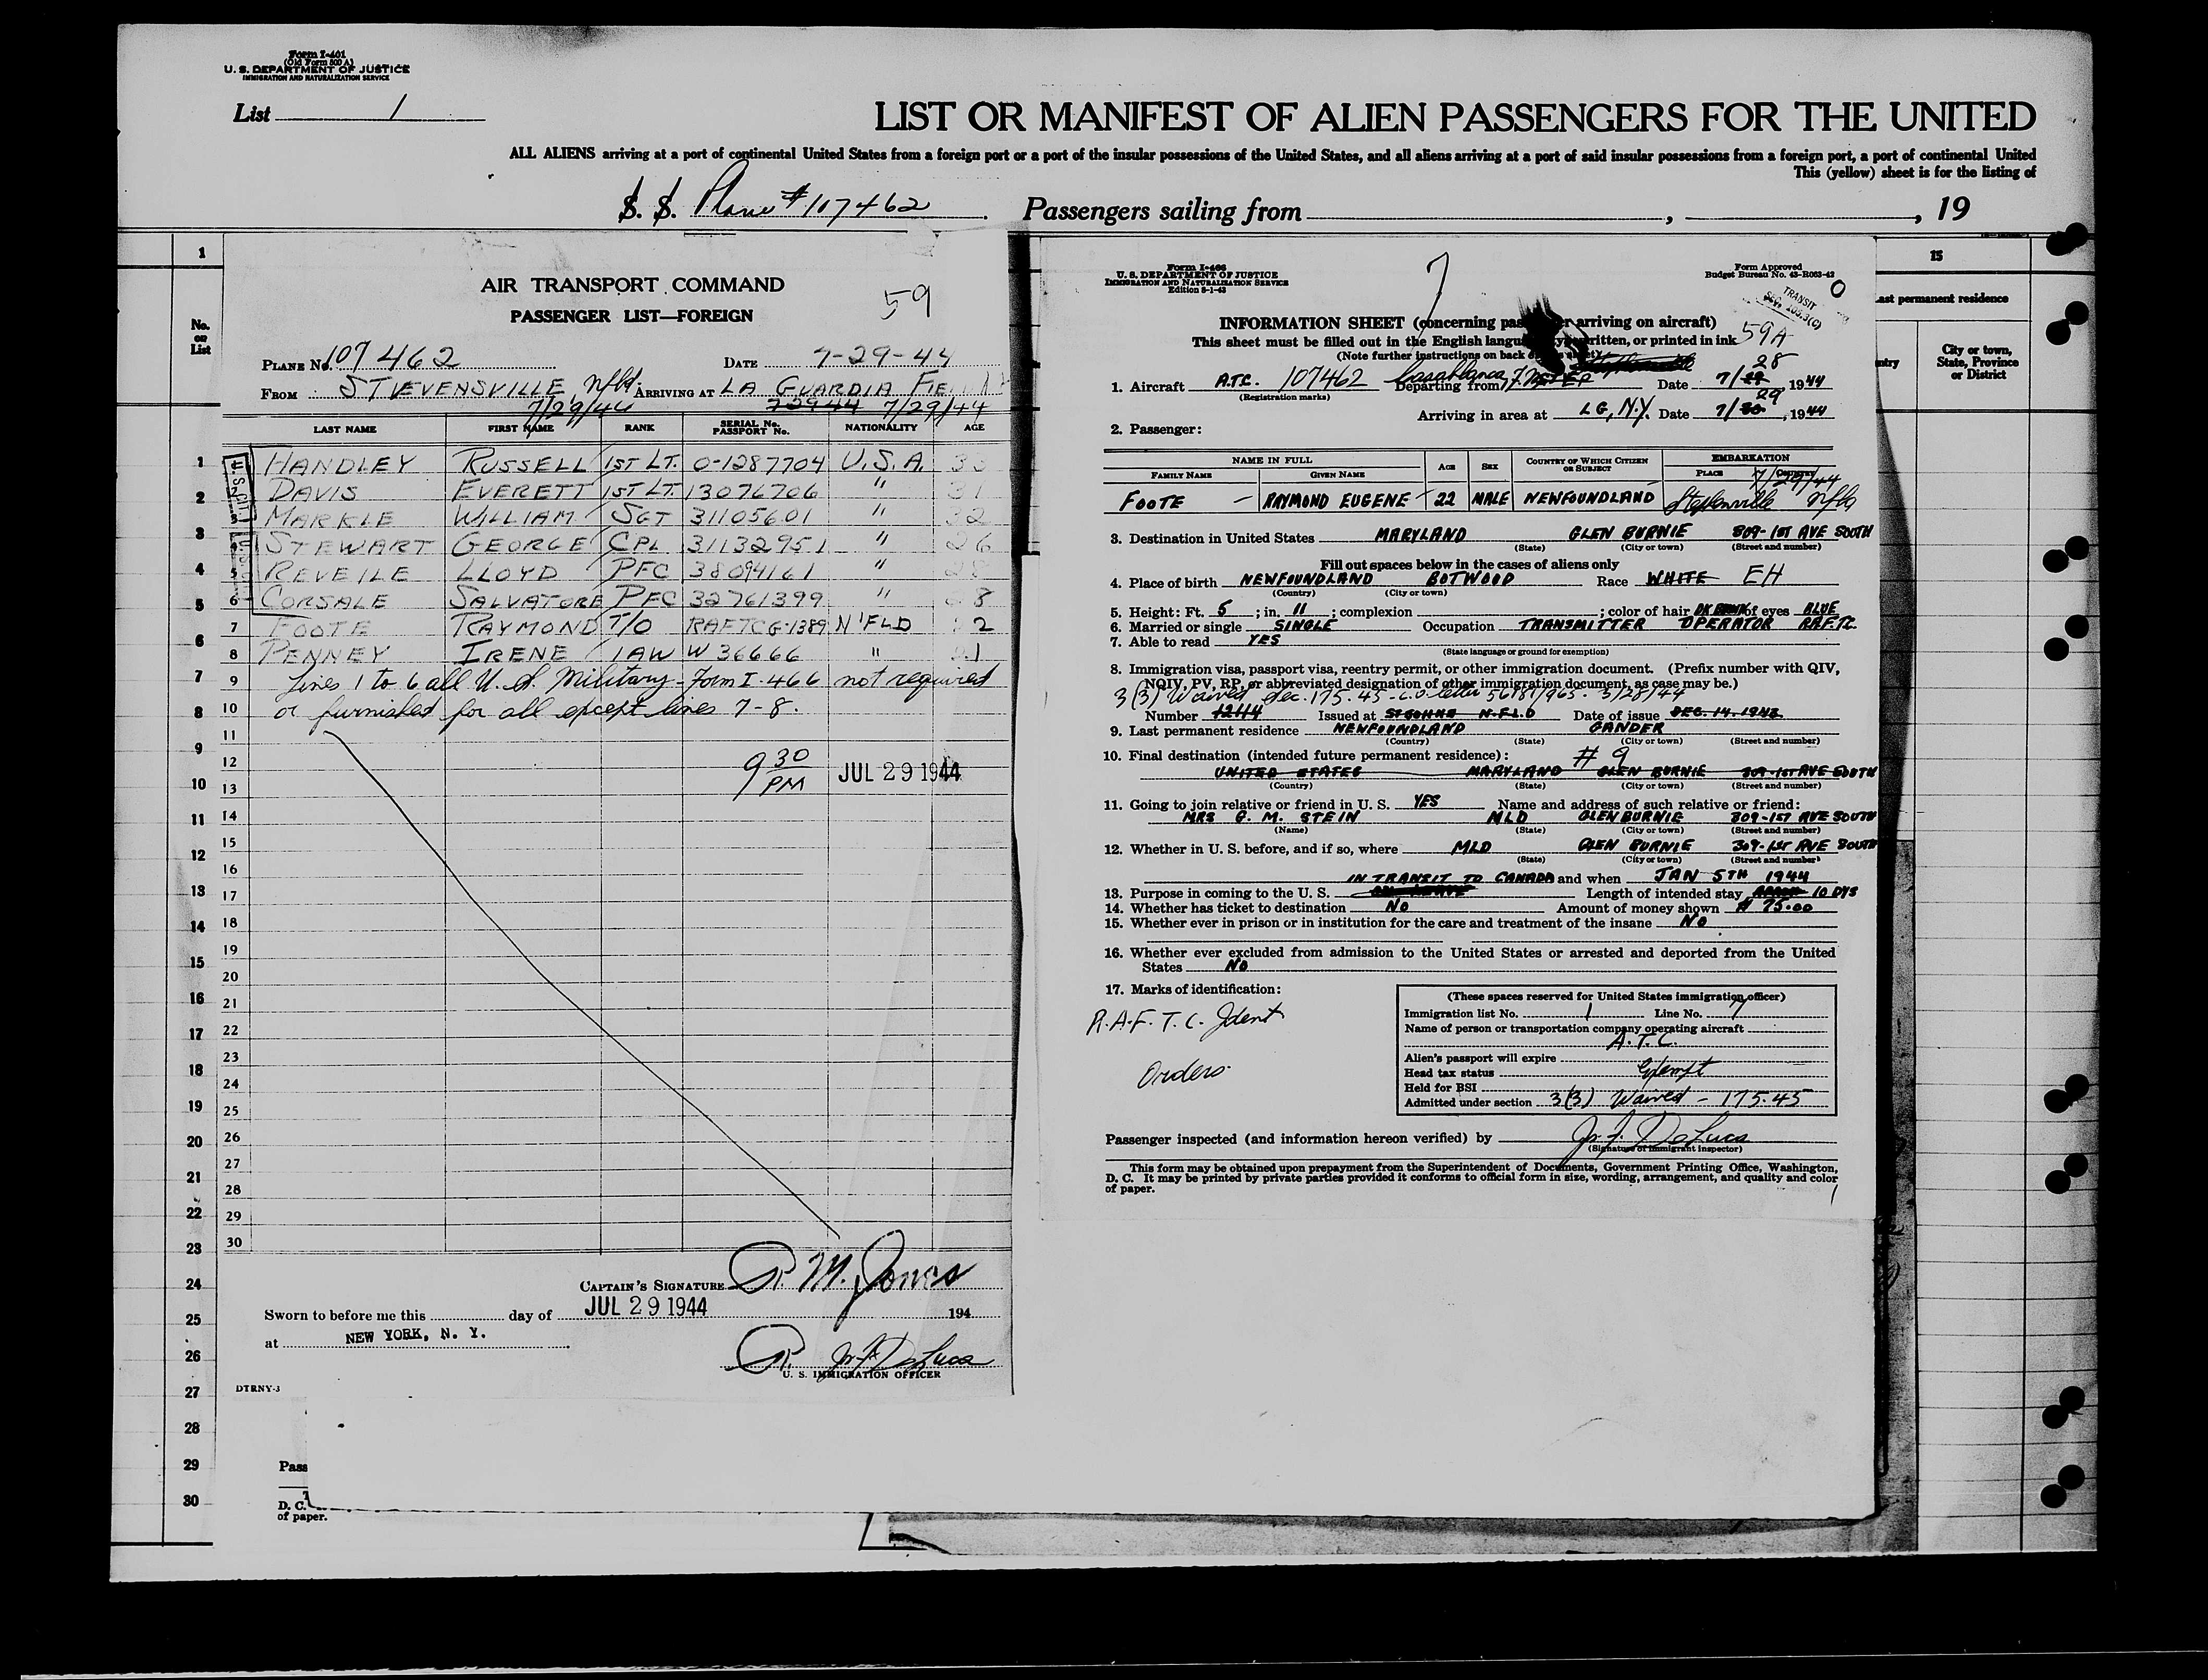 Form I-401
(Old Form 500 A)
U. S. DEPARTMENT OF JUSTICE
IMMIGRATION AND NATURALIZATION SERVICE
List 1
LIST OR MANIFEST OF ALIEN PASSENGERS FOR THE UNITED
ALL ALIENS arriving at a port of continental United States from a foreign port or a port of the insular possessions of the United States, and all aliens arriving at a port of said insular possessions from a foreign port, a port of continental United
This (yellow) sheet is for the listing of
S. S. Plane # 107462 Passengers sailing from , , 19
1
No. on List
AIR TRANSPORT COMMAND
59
PASSENGER LIST—FOREIGN
PLANE No. 107462 DATE 7-29-44
FROM STEVENSVILLE Nfld. ARRIVING AT LA GUARDIA
7/29/44 7-29-44 7/29/44
LAST NAME FIRST NAME RANK SERIAL No. PASSPORT No. NATIONALITY AGE
1 HANDLEY RUSSELL 1ST LT. O-1287704 U.S.A.
2 DAVIS EVERETT 1ST LT. 13076706 " 31
3 MARKLE WILLIAM SGT 31105601 " 32
STEWART GEORGE CPL 31132951 " 26
5 REVEILE LLOYD PFC 38094161 " 28
6 CORSALE SALVATORE PFC 32761399 "
7 FOOTE RAYMOND T/O RAFTC G-1389 N'FLD 22
8 PENNEY IRENE IAW W 36666 " 21
9 Lines 1 to 6 all U.S. Military - Form I-466 not required
10 or furnished for all except lines 7-8.
11
12 9 30 PM JUL 29 1944
13
14
15
16
17
18
19
20
21
22
23
24
25
26
27
28
29
30
CAPTAIN'S SIGNATURE R. M. Jones
Sworn to before me this day of JUL 29 1944 194
at NEW YORK, N. Y.
DeLuca
U. S. IMMIGRATION OFFICER
DTRNY-3
1
2
3
4
5
6
7
8
9
10
11
12
13
14
15
16
17
18
19
20
21
22
23
24
25
26
27
28
29
30
Pass
D. C.
of paper.
Form I-466
U. S. DEPARTMENT OF JUSTICE
IMMIGRATION AND NATURALIZATION SERVICE
Edition 5-1-43
7
Form Approved
Budget Bureau No. 43-R063-42
TRANSIT
0
59A
INFORMATION SHEET (concerning arriving on aircraft)
This sheet must be filled out in the English or printed in ink
(Note further instructions on back
1. Aircraft A.T.C. 107462 Casablanca, Departing from Date 7/28, 1944
(Registration marks)
Arriving in area at LG, N.Y. Date 7/29, 1944
2. Passenger:
NAME IN FULL AGE SEX COUNTRY OF WHICH CITIZEN OR SUBJECT EMBARKATION
FAMILY NAME GIVEN NAME PLACE COUNTRY 7/29/44
FOOTE — RAYMOND EUGENE 22 MALE NEWFOUNDLAND Stephenville Nfld
3. Destination in United States MARYLAND GLEN BURNIE 309-1ST AVE SOUTH
(State) (City or town) (Street and number)
Fill out spaces below in the cases of aliens only
4. Place of birth NEWFOUNDLAND BOTWOOD Race WHITE EH
(Country) (City or town)
5. Height: Ft. 5; in. 11; complexion ; color of hair DK BRWN of eyes BLUE
6. Married or single SINGLE Occupation TRANSMITTER OPERATOR RAF.TC.
7. Able to read YES
(State language or ground for exemption)
8. Immigration visa, passport visa, reentry permit, or other immigration document. (Prefix number with QIV,
NQIV, PV, RP, or abbreviated designation of other immigration document, as case may be.)
3(3) Waived Sec. 175.45 - C.O. letter 56187/965 - 3/28/44
Number 12114 Issued at ST JOHNS N.F.L.D Date of issue DEC. 14. 1943.
9. Last permanent residence NEWFOUNDLAND GANDER
(Country) (State) (City or town) (Street and number)
10. Final destination (intended future permanent residence): # 9
UNITED STATES MARYLAND GLEN BURNIE 309-1ST AVE SOUTH
(Country) (State) (City or town) (Street and number)
11. Going to join relative or friend in U. S. YES Name and address of such relative or friend:
MRS G. M. STEIN MLD GLEN BURNIE 309-1ST AVE SOUTH
(Name) (State) (City or town) (Street and number)
12. Whether in U. S. before, and if so, where MLD GLEN BURNIE 309-1ST AVE SOUTH
(State) (City or town) (Street and number)
IN TRANSIT TO CANADA and when JAN 5TH 1944
13. Purpose in coming to the U. S. ON LEAVE Length of intended stay 10 DYS
14. Whether has ticket to destination NO Amount of money shown $ 75.00
15. Whether ever in prison or in institution for the care and treatment of the insane NO
16. Whether ever excluded from admission to the United States or arrested and deported from the United
States NO
17. Marks of identification:
R.A.F.T.C. Ident
Orders
(These spaces reserved for United States immigration officer)
Immigration list No. 1 Line No. 7
Name of person or transportation company operating aircraft
A.T.C.
Alien's passport will expire
Head tax status Exempt
Held for BSI
Admitted under section 3(3) Waived - 175.45
Passenger inspected (and information hereon verified) by DeLuca
(Signature of immigrant inspector)
This form may be obtained upon prepayment from the Superintendent of Documents, Government Printing Office, Washington,
D. C. It may be printed by private parties provided it conforms to official form in size, wording, arrangement, and quality and color
of paper.
15
Last permanent residence
City or town,
State, Province
or District